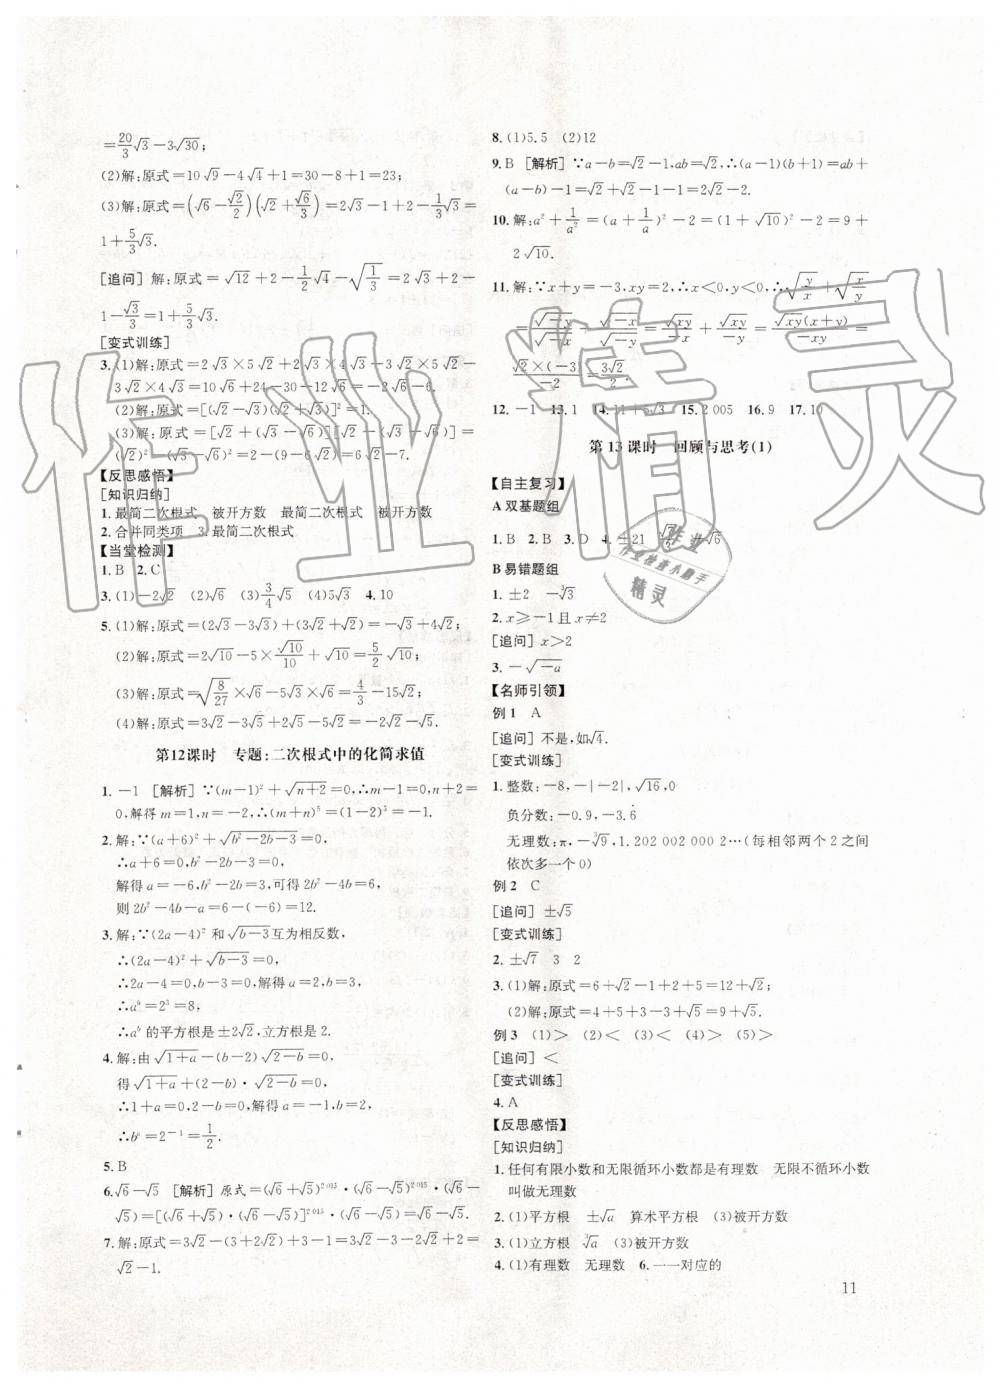 =20/3√3-3√30;
(2)解:原式=10√9-4√4+1=30-8+1=23;
(3)解:原式=(√6-√2/2)(√2+√6/3)=2√3-1+2-1/3√3=
1+5/3√3.
[追问] 解:原式=√12+2-1/2√4-√(1/3)=2√3+2-
1-√3/3=1+5/3√3.
[变式训练]
3.(1)解:原式=2√3×5√2+2√3×4√3-3√2×5√2-
3√2×4√3=10√6+24-30-12√6=-2√6-6.
(2)解:原式=[(√2-√3)(√2+√3)]²=1.
(3)解:原式=[√2+(3-√6)][√2-(3-√6)]=
(√2)²-(3-√6)²=2-(9-6√6+6)=6√6-13.
【反思感悟】
[知识归纳]
1.最简二次根式 被开方数 最简二次根式 被开方数
2.合并同类项 3.最简二次根式
【当堂检测】
1.B 2.C
3.(1)-2√2 (2)√6 (3)3/4√5 (4)5√3 4.10
5.(1)解:原式=(2√3-3√3)+(3√2+√2)=-√3+4√2;
(2)解:原式=2√10-5×√10/10+√10=5/2√10;
(3)解:原式=√(8/27)×√6-5√3×√6=4/3-15√2;
(4)解:原式=3√2-3√5+2√5-5√2=-2√2-√5.
第12课时 专题:二次根式中的化简求值
1.-1 [解析]∵(m-1)²+√(n+2)=0,∴m-1=0,n+2=
0,解得m=1,n=-2,∴(m+n)⁵=(1-2)⁵=-1.
2.解:∵(a+6)²+√(b²-2b-3)=0,
∴a+6=0,b²-2b-3=0,
解得a=-6,b²-2b=3,可得2b²-4b=6,
则2b²-4b-a=6-(-6)=12.
3.解:∵(2a-4)²和√(b-3)互为相反数,
∴(2a-4)²+√(b-3)=0,
∴2a-4=0,b-3=0,解得a=2,b=3,
∴aᵇ=2³=8,
∴aᵇ的平方根是±2√2,立方根是2.
4.解:由√(1+a)-(b-2)√(2-b)=0,
得√(1+a)+(2-b)·√(2-b)=0,
∴1+a=0,2-b=0,解得a=-1,b=2,
∴bᵃ=2⁻¹=1/2.
5.B
6.√6-√5 [解析]原式=(√6+√5)²⁰¹⁵·(√6-√5)²⁰¹⁵·(√6-
√5)=[(√6+√5)·(√6-√5)]²⁰¹⁵·(√6-√5)=√6-√5.
7.解:原式=3√2-(3+2√3+1)=3√2-3-3√2+2=
√2-1.
8.(1)5.5 (2)12
9.B [解析]∵a-b=√2-1,ab=√2,∴(a-1)(b+1)=ab+
(a-b)-1=√2+√2-1-1=2√2-2.
10.解:a²+1/a²=(a+1/a)²-2=(1+√10)²-2=9+
2√10.
11.解:∵x+y=-3,xy=2,∴x<0,y<0,∴√(y/x)+√(x/y)
=√(-y)/√(-x)+√(-x)/√(-y)=√(xy)/(-x)+√(xy)/(-y)=√(xy)(x+y)/(-xy)=
√2×(-3)/(-2)=3√2/2.
12.-1 13.1 14.11+5√3 15.2 005 16.9 17.10
第13课时 回顾与思考(1)
【自主复习】
A 双基题组
1.B 2.B 3.D 4.±21
B 易错题组
1.±2 -∛3
2.x≥-1且x≠0
[追问] x>2
3.-√(-a)
【名师引领】
例1 A
[追问] 不是,如√4.
[变式训练]
1.整数:-8,-|-2|,√16,0
负分数:-0.9,-3.6̇
无理数:π,-∛9,1.202 002 000 2…(每相邻两个2之间
依次多一个0)
例2 C
[追问] ±√5
[变式训练]
2.±√7 3 2
3.(1)解:原式=6+√2-1+2+5=12+√2;
(2)解:原式=4+5+3-3+√5=9+√5.
例3 (1)> (2)< (3)< (4)> (5)>
[追问] <
[变式训练]
4.A
【反思感悟】
[知识归纳]
1.任何有限小数和无限循环小数都是有理数 无限不循环小数
叫做无理数
2.(1)平方根 ±√a 算术平方根 (3)被开方数
3.(1)立方根 ∛a (3)被开方数
4.(1)有理数 无理数 6.一一对应的
11
作业精灵
作业检查小助手
精灵